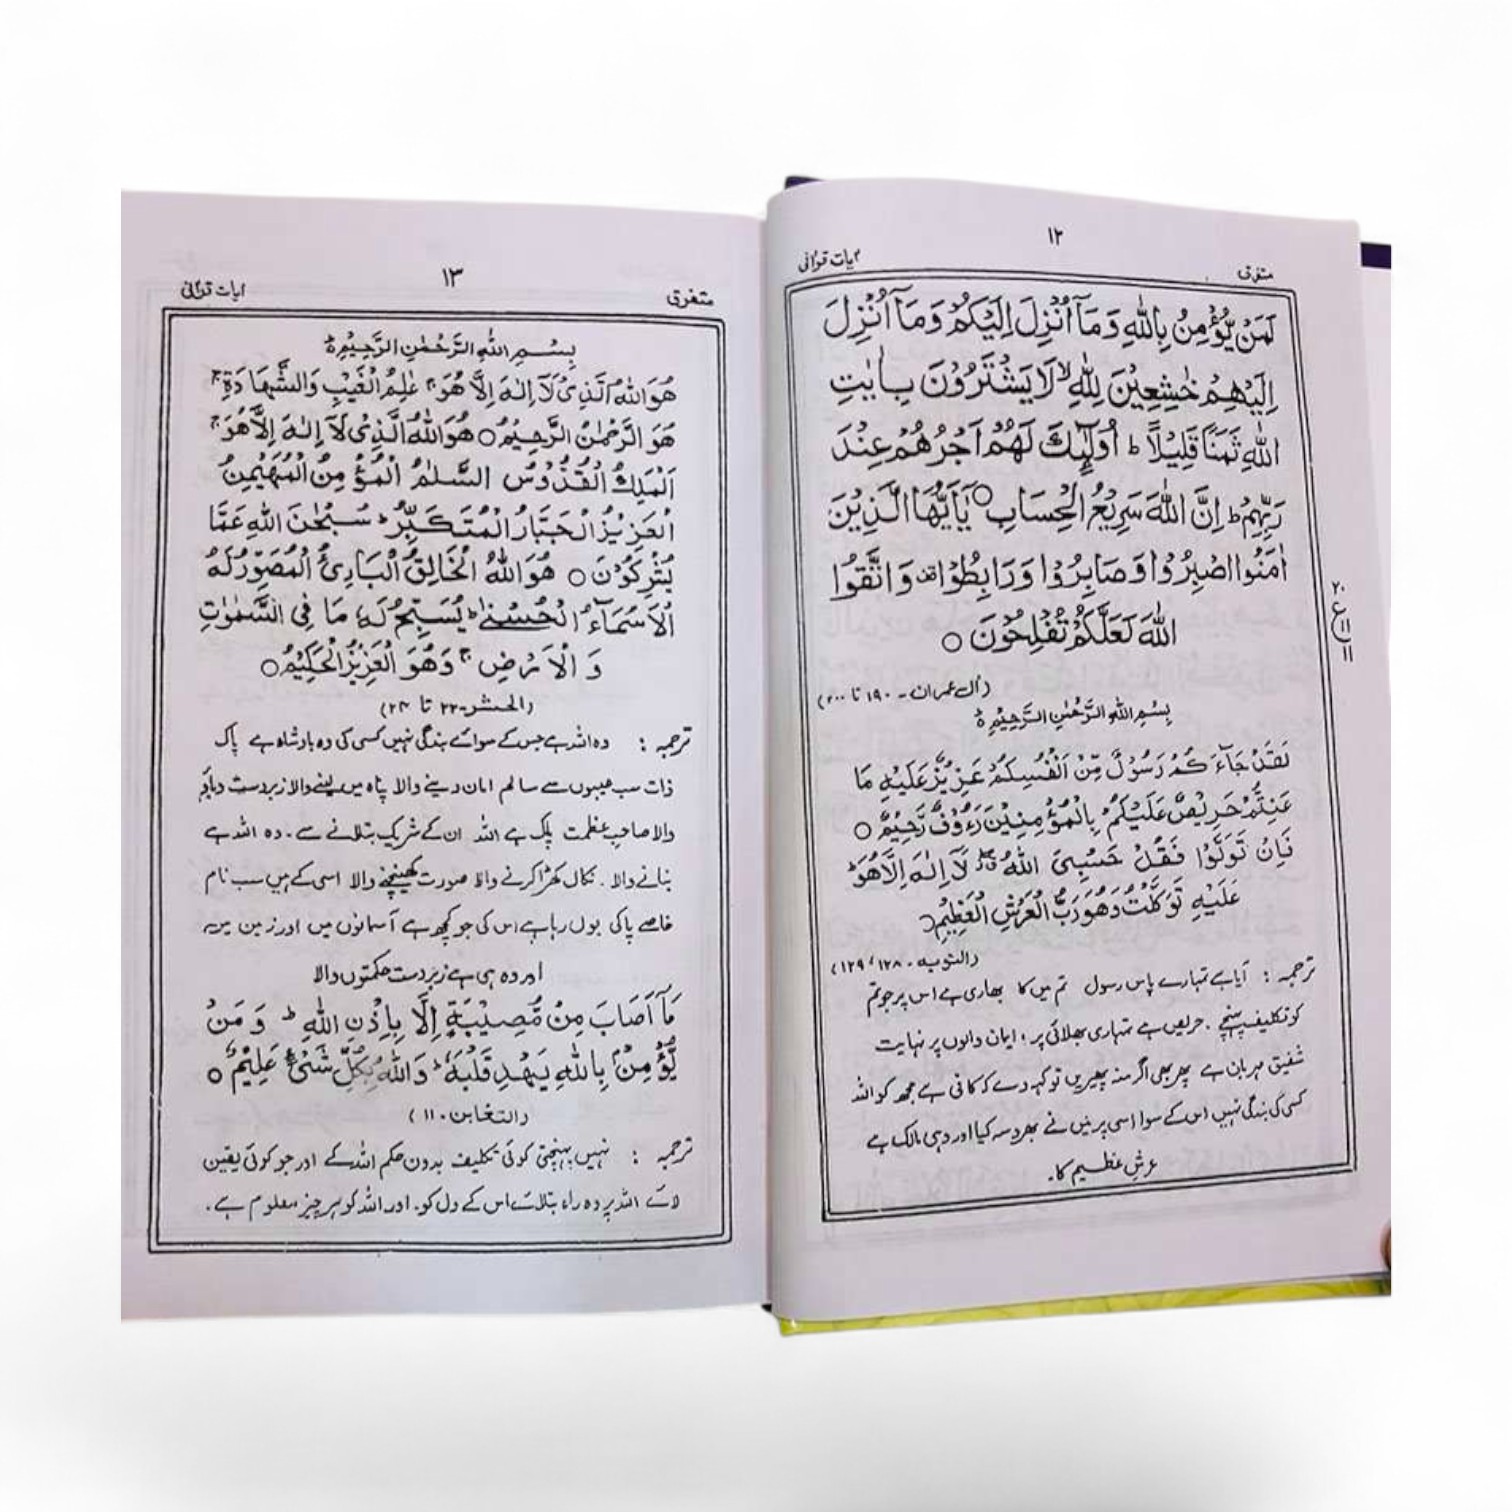 ۱۲
متفرق آیات قرآنی
لَمَنْ يُّؤْمِنُ بِاللّٰهِ وَمَآ اُنْزِلَ اِلَيْكُمْ وَمَآ اُنْزِلَ
اِلَيْهِمْ خٰشِعِيْنَ لِلّٰهِ ۙ لَا يَشْتَرُوْنَ بِاٰيٰتِ
اللّٰهِ ثَمَنًا قَلِيْلًا ؕ اُولٰٓئِكَ لَهُمْ اَجْرُهُمْ عِنْدَ
رَبِّهِمْ ؕ اِنَّ اللّٰهَ سَرِيْعُ الْحِسَابِ ○ يٰٓاَيُّهَا الَّذِيْنَ
اٰمَنُوا اصْبِرُوْا وَصَابِرُوْا وَرَابِطُوْا ۟ وَاتَّقُوا
اللّٰهَ لَعَلَّكُمْ تُفْلِحُوْنَ ○
۲۰
ع
۱۱
۱۱
(اٰل عمران - ۱۹۰ تا ۲۰۰)
بِسْمِ اللّٰهِ الرَّحْمٰنِ الرَّحِيْمِ ؕ
لَقَدْ جَآءَكُمْ رَسُوْلٌ مِّنْ اَنْفُسِكُمْ عَزِيْزٌ عَلَيْهِ مَا
عَنِتُّمْ حَرِيْصٌ عَلَيْكُمْ بِالْمُؤْمِنِيْنَ رَءُوْفٌ رَّحِيْمٌ ○
فَاِنْ تَوَلَّوْا فَقُلْ حَسْبِىَ اللّٰهُ ۖ لَآ اِلٰهَ اِلَّا هُوَ ؕ
عَلَيْهِ تَوَكَّلْتُ وَهُوَ رَبُّ الْعَرْشِ الْعَظِيْمِ
(التوبہ - ۱۲۸، ۱۲۹)
ترجمہ : آیا ہے تمہارے پاس رسول تم میں کا بھاری ہے اس پر جو تم
کو تکلیف پہنچے . حریص ہے تمہاری بھلائی پر ، ایمان والوں پر نہایت
شفیق مہربان ہے پھر بھی اگر منہ پھیریں تو کہہ دے کہ کافی ہے مجھ کو اللہ
کسی کی بندگی نہیں اس کے سوا اسی پر میں نے بھروسہ کیا اور وہی مالک ہے
عرش عظیم کا۔
۱۳
متفرق آیات قرآنی
بِسْمِ اللّٰهِ الرَّحْمٰنِ الرَّحِيْمِ ؕ
هُوَ اللّٰهُ الَّذِىْ لَآ اِلٰهَ اِلَّا هُوَ ۚ عٰلِمُ الْغَيْبِ وَالشَّهَادَةِ ۚ
هُوَ الرَّحْمٰنُ الرَّحِيْمُ ○ هُوَ اللّٰهُ الَّذِىْ لَآ اِلٰهَ اِلَّا هُوَ ۚ
اَلْمَلِكُ الْقُدُّوْسُ السَّلٰمُ الْمُؤْمِنُ الْمُهَيْمِنُ
الْعَزِيْزُ الْجَبَّارُ الْمُتَكَبِّرُ ؕ سُبْحٰنَ اللّٰهِ عَمَّا
يُشْرِكُوْنَ ○ هُوَ اللّٰهُ الْخَالِقُ الْبَارِئُ الْمُصَوِّرُ لَهُ
الْاَسْمَآءُ الْحُسْنٰى ؕ يُسَبِّحُ لَهٗ مَا فِى السَّمٰوٰتِ
وَالْاَرْضِ ۚ وَهُوَ الْعَزِيْزُ الْحَكِيْمُ ○
(الحشر - ۲۲ تا ۲۴)
ترجمہ : وہ اللہ ہے جس کے سوائے بندگی نہیں کسی کی وہ بادشاہ ہے پاک
ذات سب عیبوں سے سالم امان دینے والا پناہ میں لینے والا زبردست دباؤ
والا صاحب عظمت پاک ہے اللہ ان کے شریک بتلانے سے ۔ وہ اللہ ہے
بنانے والا . نکال کھڑا کرنے والا صورت کھینچنے والا اسی کے ہیں سب نام
خاصے پاکی بول رہا ہے اس کی جو کچھ ہے آسمانوں میں اور زمین میں
اور وہ ہی ہے زبردست حکمتوں والا
مَآ اَصَابَ مِنْ مُّصِيْبَةٍ اِلَّا بِاِذْنِ اللّٰهِ ؕ وَمَنْ
يُّؤْمِنْۢ بِاللّٰهِ يَهْدِ قَلْبَهٗ ؕ وَاللّٰهُ بِكُلِّ شَىْءٍ عَلِيْمٌ ○
(التغابن ۔ ۱۱)
ترجمہ : نہیں پہنچتی کوئی تکلیف بدون حکم اللہ کے اور جو کوئی یقین
لائے اللہ پر وہ راہ بتلائے اس کے دل کو۔ اور اللہ کو ہر چیز معلوم ہے ۔